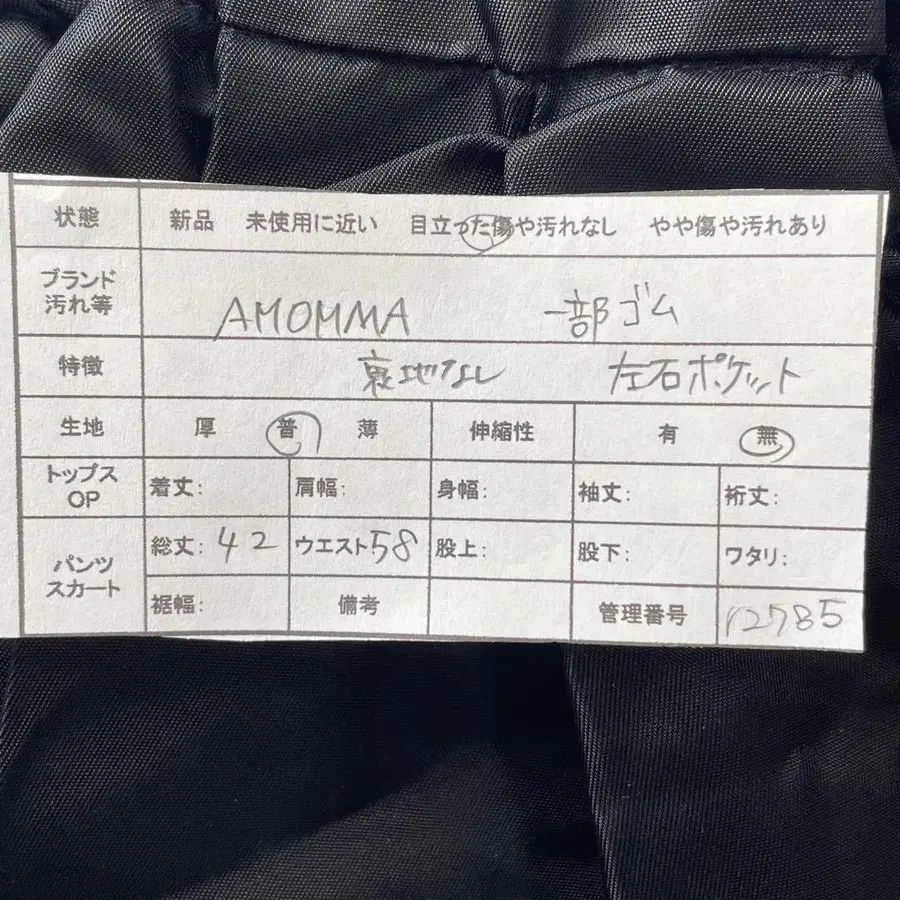 状態 新品 未使用に近い 目立った傷や汚れなし やや傷や汚れあり
ブランド
汚れ等 AMOMMA 一部ゴム
特徴 裏地なし 左右ポケット
生地 厚 普 薄 伸縮性 有 無
トップス
OP 着丈: 肩幅: 身幅: 袖丈: 裄丈:
パンツ
スカート 総丈: 42 ウエスト58 股上: 股下: ワタリ:
裾幅: 備考 管理番号 12785